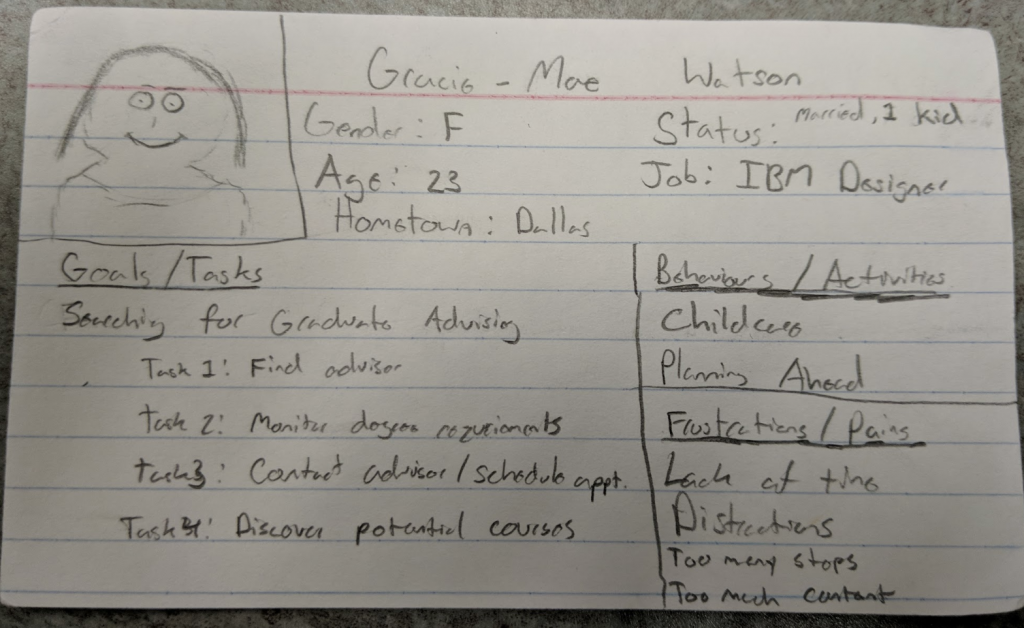 Gracie - Mae Watson
Gender: F
Status: Married, 1 kid
Age: 23
Job: IBM Designer
Hometown: Dallas
Goals/Tasks
Searching for Graduate Advising
Task 1: Find advisor
Task 2: Monitor degree requriements
Task 3: Contact advisor/schedule appt.
Task 4: Discover potential courses
Behaviours/Activities
Childcare
Planning Ahead
Frustrations/Pains
Lack of time
Distractions
Too many stops
Too much content